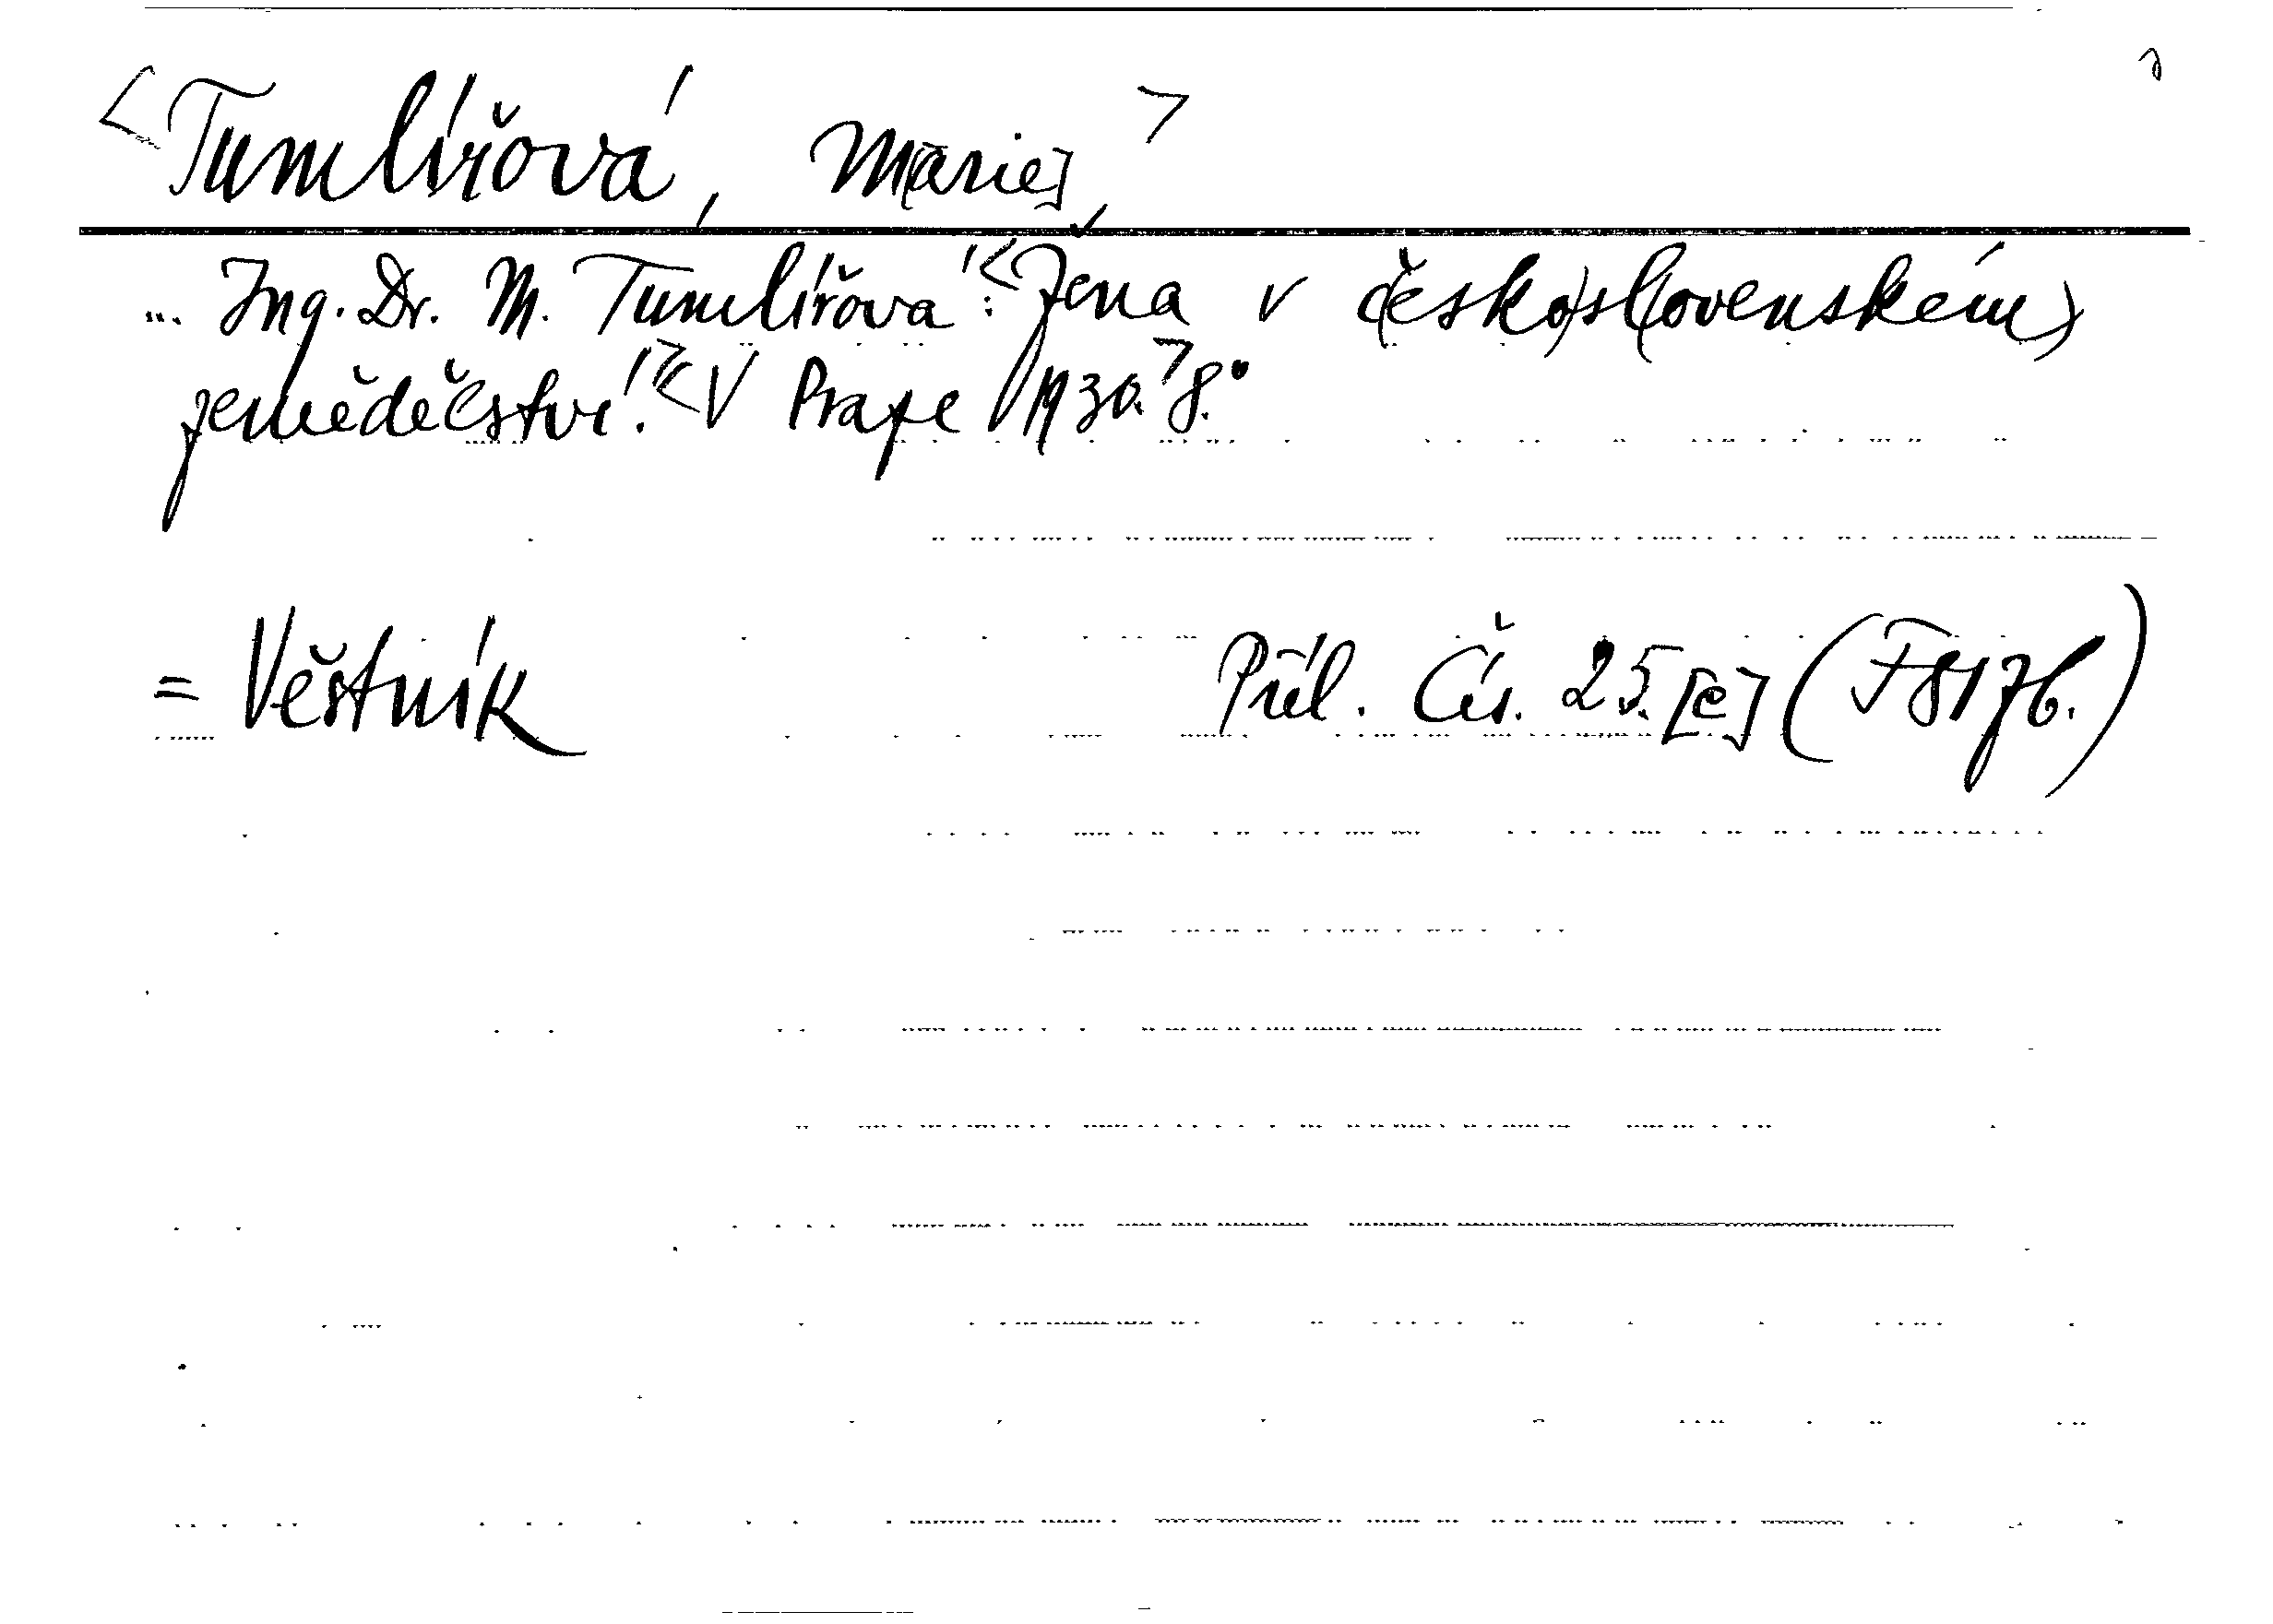 <Tumlířová, M[arie],>
... Ing. Dr. M. Tumlířová: <Žena v česko)sl(ovenském)
zemědělství.><V Praze 1930.> 8°
= Věstník Příl. Čís. 25.[e] (F 8176.)